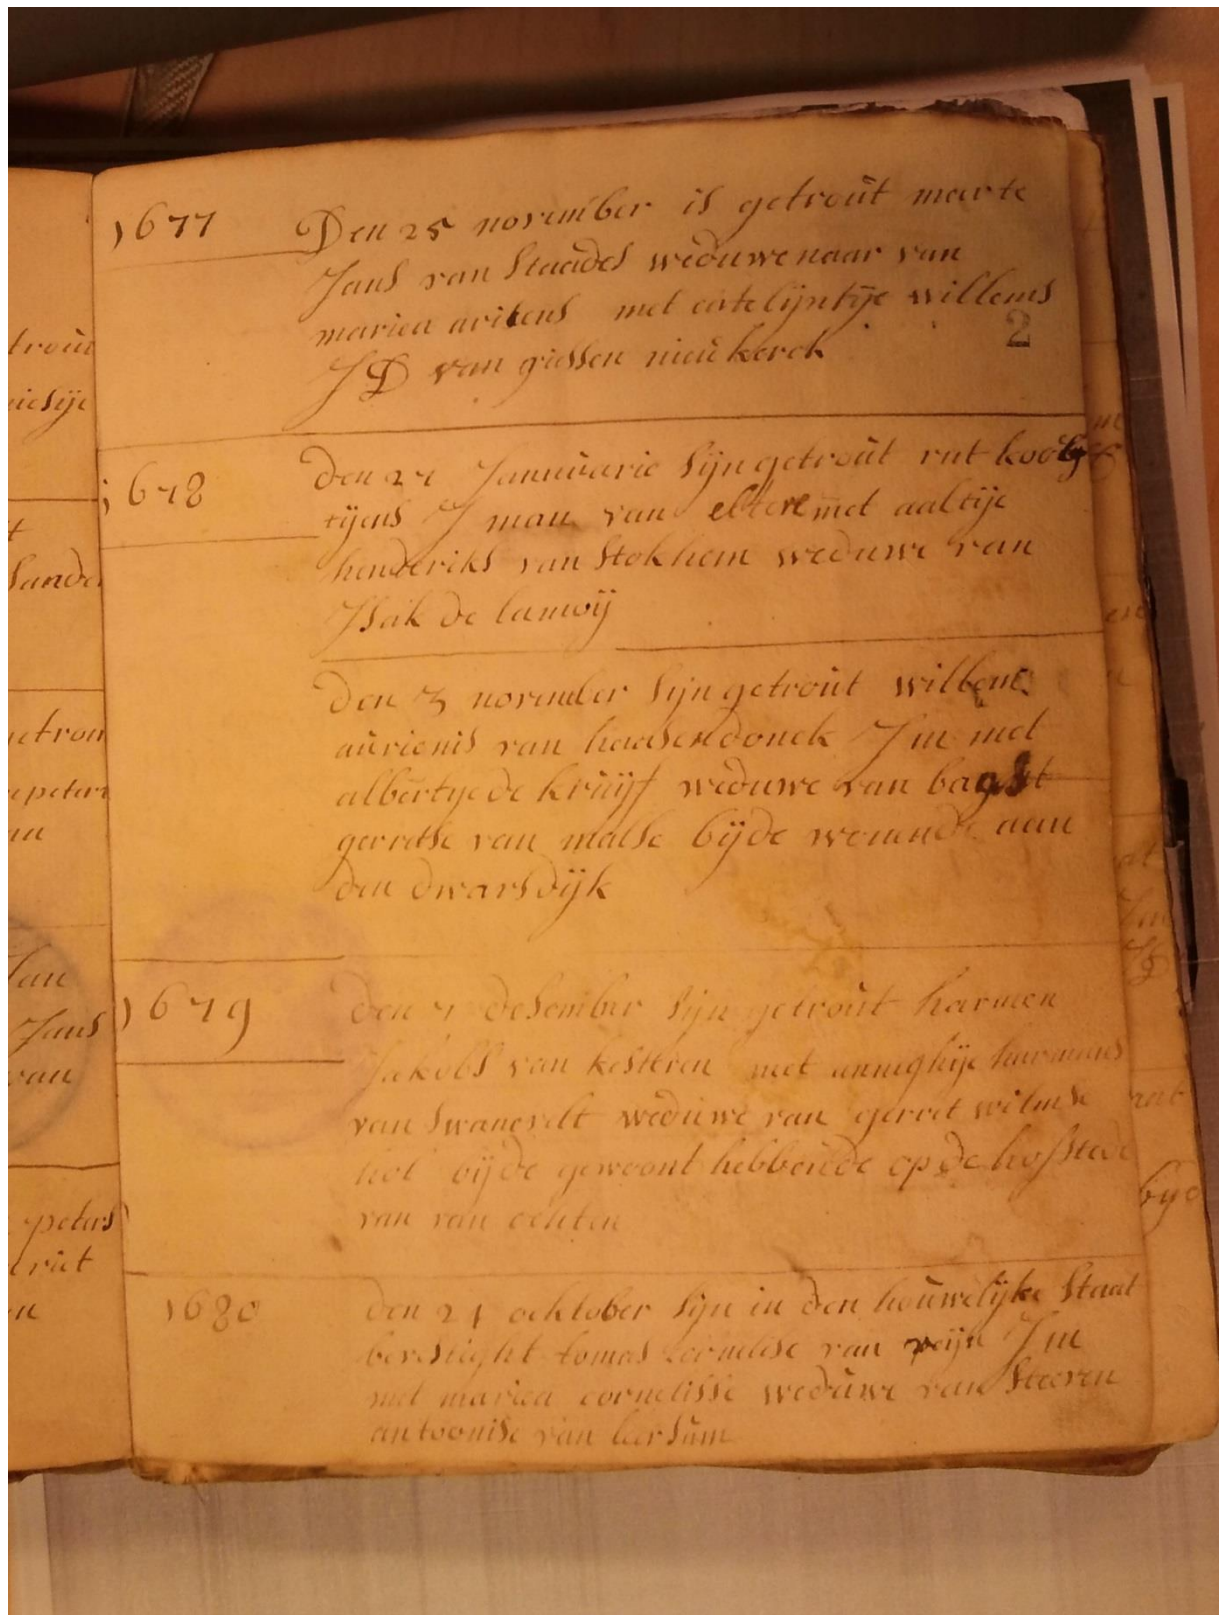 trouw
1677 Den 25 november is getrout marte
Jans van Staades weduwenaar van
mariea ariens met catelijntije willems
2
JD van giessen nieukerck
1678 den 27 Januwarie sijn getrout rut
tijens J man van elst met aaltije
henderiks van Stokhem weduwe van
Isak de lanoij
den 3 november sijn getrout willem
aurienis van haasendonck J m met
albertije de kruijf weduwe van
gerretse van malse bijde wonende aen
den dwarsdijk
1679 den 7 desember sijn getrout harmen
Jakobs van kesteren met anneghije harmans
van Swanevelt weduwe van gerret wilmse
hol bijde gewoont hebbende op de hofstede
van van ochten
1680 den 21 ocktober sijn in den houwelijke Staat
bevestight tomas cornelise van J m
met mariea cornelisse weduwe van Steeven
antoonise van leersum
Jan
Jans
van
peters